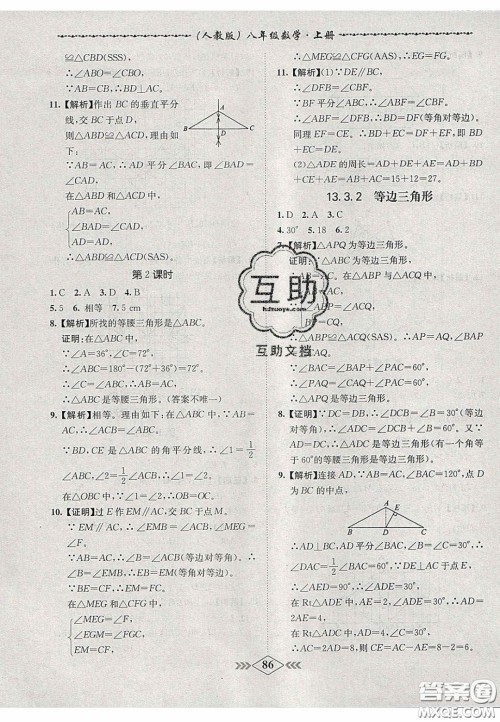 (人教版)八年级数学·上册
≌△CBD(SSS),
∴∠ABO=∠CBO,
即∠ABD=∠CBD.
11.【解析】作出 BC 的垂直平分
线,交 BC 于点 D,
则△ABD≌△ACD,理由如
下:
∵AB=AC,∴AD 平分∠BAC,即∠BAD=
∠CAD,
在△ABD 与△ACD 中,
AB=AC,
∠BAD=∠CAD,
AD=AD,
∴△ABD≌△ACD(SAS).
A
B
D
C
第 2 课时
1. C 2. A 3. D 4. B
5. 5 6. 相等 7. 5 cm
8.【解析】所找的等腰三角形是△ABC.
证明:在△ABC 中,
∵∠A=36°,∠C=72°,
∴∠ABC=180°-(72°+36°)=72°,
∵∠C=∠ABC,∴AB=AC,
∴△ABC 是等腰三角形.(答案不唯一)
9.【解析】相等.理由如下:在△ABC 中,
∵AB=AC,∴∠ABC=∠ACB,
∵BD,CE 是△ABC 的角平分线,∴∠1=1/2
∠ABC,∠2=1/2∠ACB,
∴∠1=∠2,∴OB=OC.
10.【证明】过 E 作 EM∥AC,交 BC 于点 M.
∵EM∥AC,∴∠EMB=∠ACB,∠MEG=
∠F.
∵AB=AC,∴∠B=∠ACB(等边对等角).
∴∠B=∠EMB,∴EB=EM(等角对等边).
∵BE=CF,∴EM=CF.
在△MEG 和△CFG 中,
∠MEG=∠F,
∠EGM=∠FGC,
EM=CF,
∴△MEG≌△CFG(AAS),∴EG=FG.
11.【解析】(1)∵DE∥BC,
∴∠DFB=∠CBF.
∵BF 平分∠ABC,∴∠ABF=∠CBF,
∴∠DBF=∠DFB,∴BD=DF(等角对等边).
同理 EF=CE.∴DF+EF=BD+CE=DE.
(2)△ADE 的周长=AD+AE+DE=AD+BD
+AE+CE=AB+AC=15+12=27.
13.3.2 等边三角形
1. D 2. A 3. C
4. 30° 5. 18 6. 2
7.【解析】△APQ 为等边三角形.
证明:∵△ABC 为等边三角形,∴AB=AC.
在△ABP 与△ACQ 中,
AB=AC,
∠ABP=∠ACQ,
BP=CQ,
∴△ABP≌△ACQ(SAS).∴AP=AQ,∠BAP
=∠CAQ.
∵∠BAC=∠BAP+∠PAC=60°,
∴∠PAQ=∠CAQ+∠PAC=60°,
∴△APQ 是等边三角形.
8.【证明】∵DC=DB,∴∠DCB=∠DBC(等边
对等角).又∵∠A=∠DCB+∠DBC,∠DBC=
30°,∴∠A=60°.又∵AB=AD,∴△ABD 是等
边三角形(有一个角等于 60°的等腰三角形是等
边三角形).
9.【解析】连接 AD,∵AB=AC,∠BAC=120°,D
为 BC 的中点,
A
E
B
D
C
∴AD⊥BC,AD 平分∠BAC,∠B=∠C=30°,
∴∠DAC=1/2∠BAC=60°,∵DE⊥AC 于点 E,
∴∠AED=90°,∴∠ADE=30°,
在 Rt△ADE 中,AE=2,∴AD=4,
在 Rt△ADC 中,AD=4,∠C=30°,
∴AC=2AD=8,则 CE=AC-AE=8-2=6.
互助
hdzuoye.com
互助文档
86
答案圈
MXQE.COM